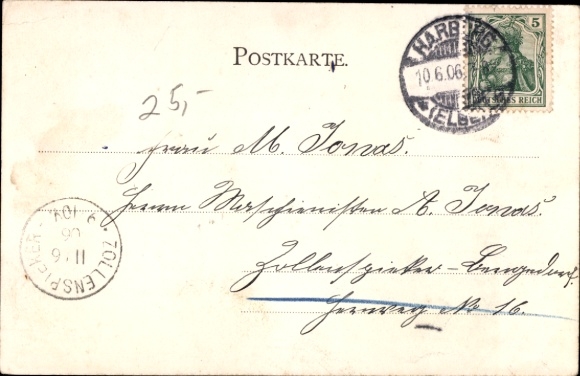 POSTKARTE.
HARBURG
10.6.06
(ELBE)
5
DEUTSCHES REICH
25,-
Frau M. Jonas.
Herrn Maschienisten A. Jonas.
Zollenspieker-Bergedorf.
Heerweg No 16.
ZOLLENSPIEKER
11.6
06